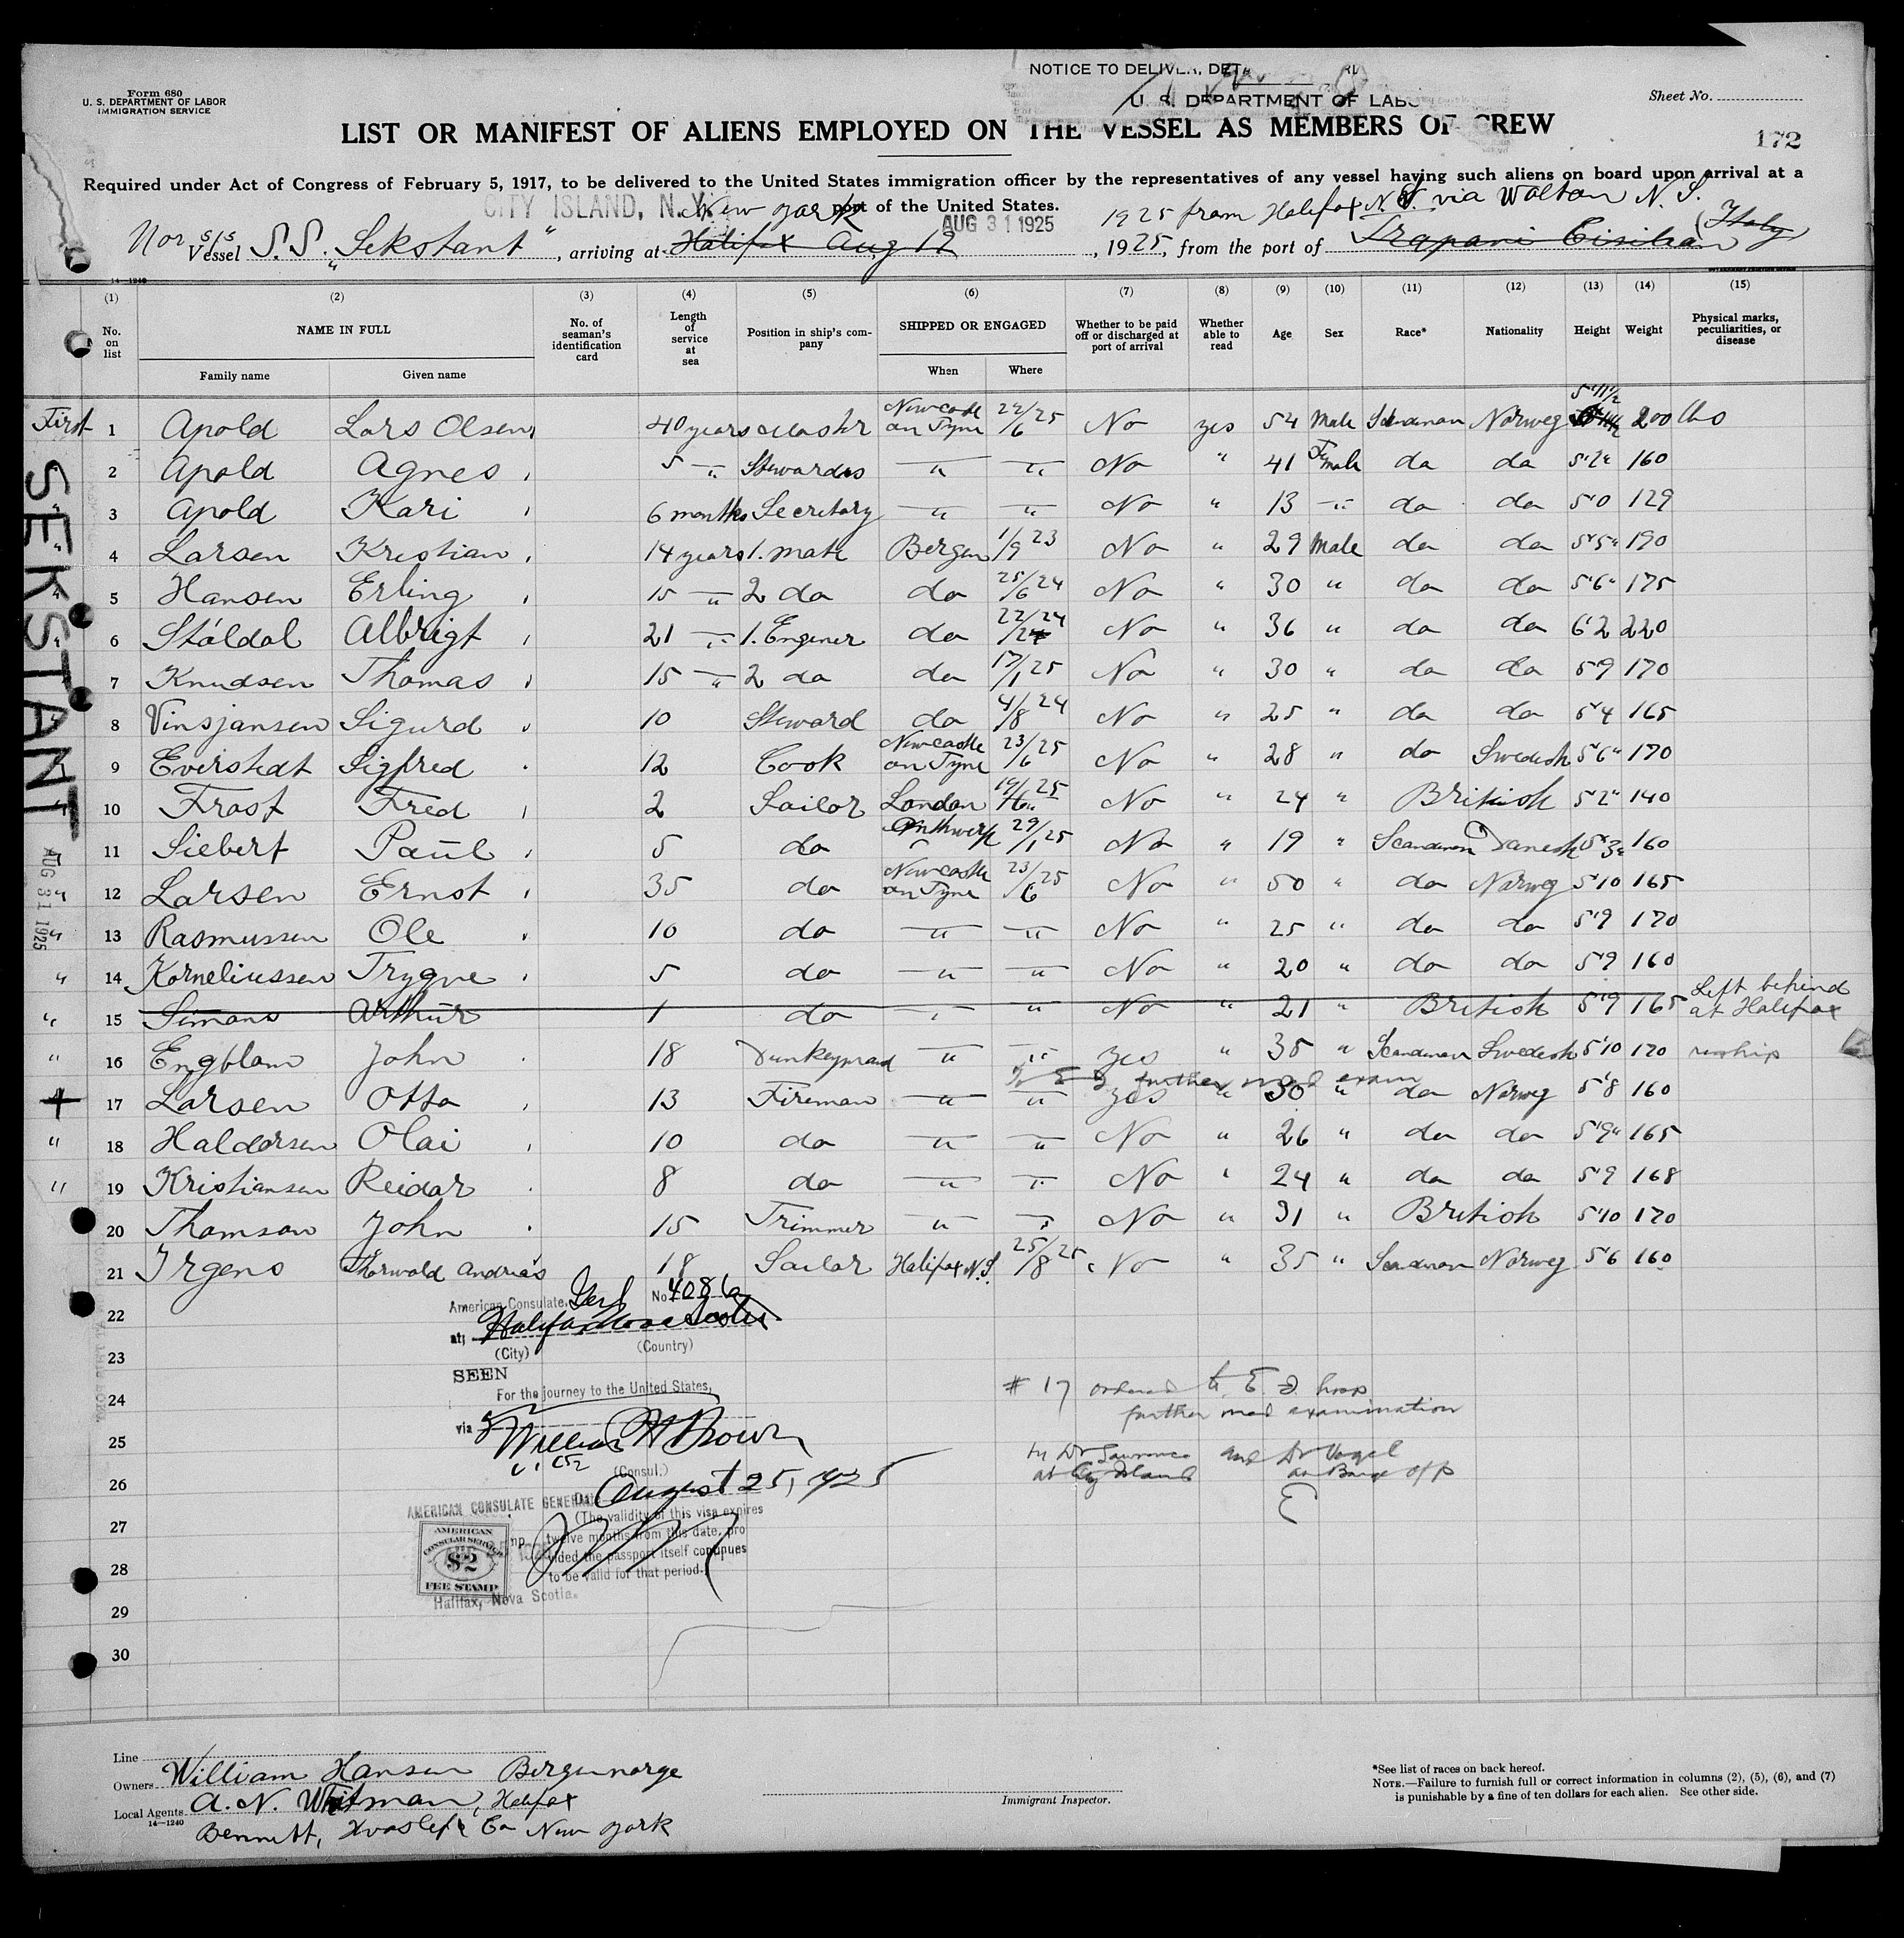 Form 680
U. S. DEPARTMENT OF LABOR
IMMIGRATION SERVICE
NOTICE TO DELIVER, DETA
U. S. DEPARTMENT OF LABO
Sheet No.
LIST OR MANIFEST OF ALIENS EMPLOYED ON THE VESSEL AS MEMBERS OF CREW
172
Required under Act of Congress of February 5, 1917, to be delivered to the United States immigration officer by the representatives of any vessel having such aliens on board upon arrival at a
port of the United States.
CITY ISLAND, N.Y. New York AUG 31 1925 1925 from Halifax N.S. via Walton N. S.
Nor S/S Vessel S.S. "Sekstant", arriving at Halifax Aug 12, 1925, from the port of Trapani Cisilian (Italy)
14-1240
(1) (2) (3) (4) (5) (6) (7) (8) (9) (10) (11) (12) (13) (14) (15)
No. on list NAME IN FULL No. of seaman's identification card Length of service at sea Position in ship's company SHIPPED OR ENGAGED Whether to be paid off or discharged at port of arrival Whether able to read Age Sex Race* Nationality Height Weight Physical marks, peculiarities, or disease
Family name Given name When Where
First 1 Apold Lars Olsen 40 years Master Newcastle on Tyne 22/6 25 No yes 54 Male Scandinav Norweg 5'11 1/2 200 lbs
2 Apold Agnes 5 " Stewardes " " No " 41 Female do do 5'2" 160
3 Apold Kari 6 months Secretary " " No " 13 " do do 5'0 129
4 Larsen Kristian 14 years 1. mate Bergen 1/9 23 No " 29 Male do do 5'5" 190
5 Hansen Erling 15 " 2 do do 25/6 24 No " 30 " do do 5'6" 175
6 Ståldal Albrigt 21 " 1. Enginer do 22/24 No " 36 " do do 6'2 220
7 Knudsen Thomas 15 " 2 do do 17/1 25 No " 30 " do do 5'9 170
8 Vinsjansen Sigurd 10 Steward do 4/8 24 No " 25 " do do 5'4 165
9 Everstedt Sigfred 12 Cook Newcastle on Tyne 23/6 25 No " 28 " do Swedish 5'6" 170
10 Frost Fred 2 Sailor London 25 No " 24 " British 5'2" 140
11 Siebert Paul 5 do Anthwerp 29/1 25 No " 19 " Scandinav Danesh 5'3" 160
" 12 Larsen Ernst 35 do Newcastle on Tyne 23/6 25 No " 50 " do Norweg 5'10 165
" 13 Rasmussen Ole 10 do " " No " 25 " do do 5'9 170
" 14 Korneliussen Trygve 5 do " " No " 20 " do do 5'9 160
" 15 Simons Arthur 1 do " " No " 21 " British 5'9 165 Left behind at Halifax
" 16 Engblom John 18 Dunkeyman " " yes " 35 " Scandinav Swedish 5'10 170 reship
To E I further med exam
+ 17 Larsen Otto 13 Fireman " " yes " 30 " do Norweg 5'8 160
" 18 Haldorsen Olai 10 do " " No " 26 " do do 5'9" 165
" 19 Kristiansen Reidar 8 do " " No " 24 " do do 5'9 168
20 Thomson John 15 Trimmer " " No " 31 " British 5'10 170
21 Irgens Thorwald Andreas 18 Sailor Halifax N.S. 25/8 25 No " 35 " Scandinav Norweg 5'6 160
22
23
24
25
26
27
28
29
30
SEKSTANT
AUG 31 1925
American Consulate Genl No 4086
at Halifax Nova Scotia
(City) (Country)
SEEN
For the journey to the United States,
via
William H Brown
(Consul.)
Date August 25, 1925
(The validity of this visa expires
twelve months from this date, pro
vided the passport itself continues
to be valid for that period.)
AMERICAN CONSULATE GENERAL
AMERICAN
CONSULAR SERVICE
$2
FEE STAMP
Halifax, Nova Scotia.
# 17 ordered to E. I. hosp
further med examination
by Dr Lawrence and Dr Vogel
at City Island on Barge Off
Line
Owners William Hansen Bergen norge
Local Agents A. N. Whitman, Halifax
14-1240
Bennett, Hvoslef & Co New York
Immigrant Inspector.
*See list of races on back hereof.
NOTE.—Failure to furnish full or correct information in columns (2), (5), (6), and (7)
is punishable by a fine of ten dollars for each alien. See other side.